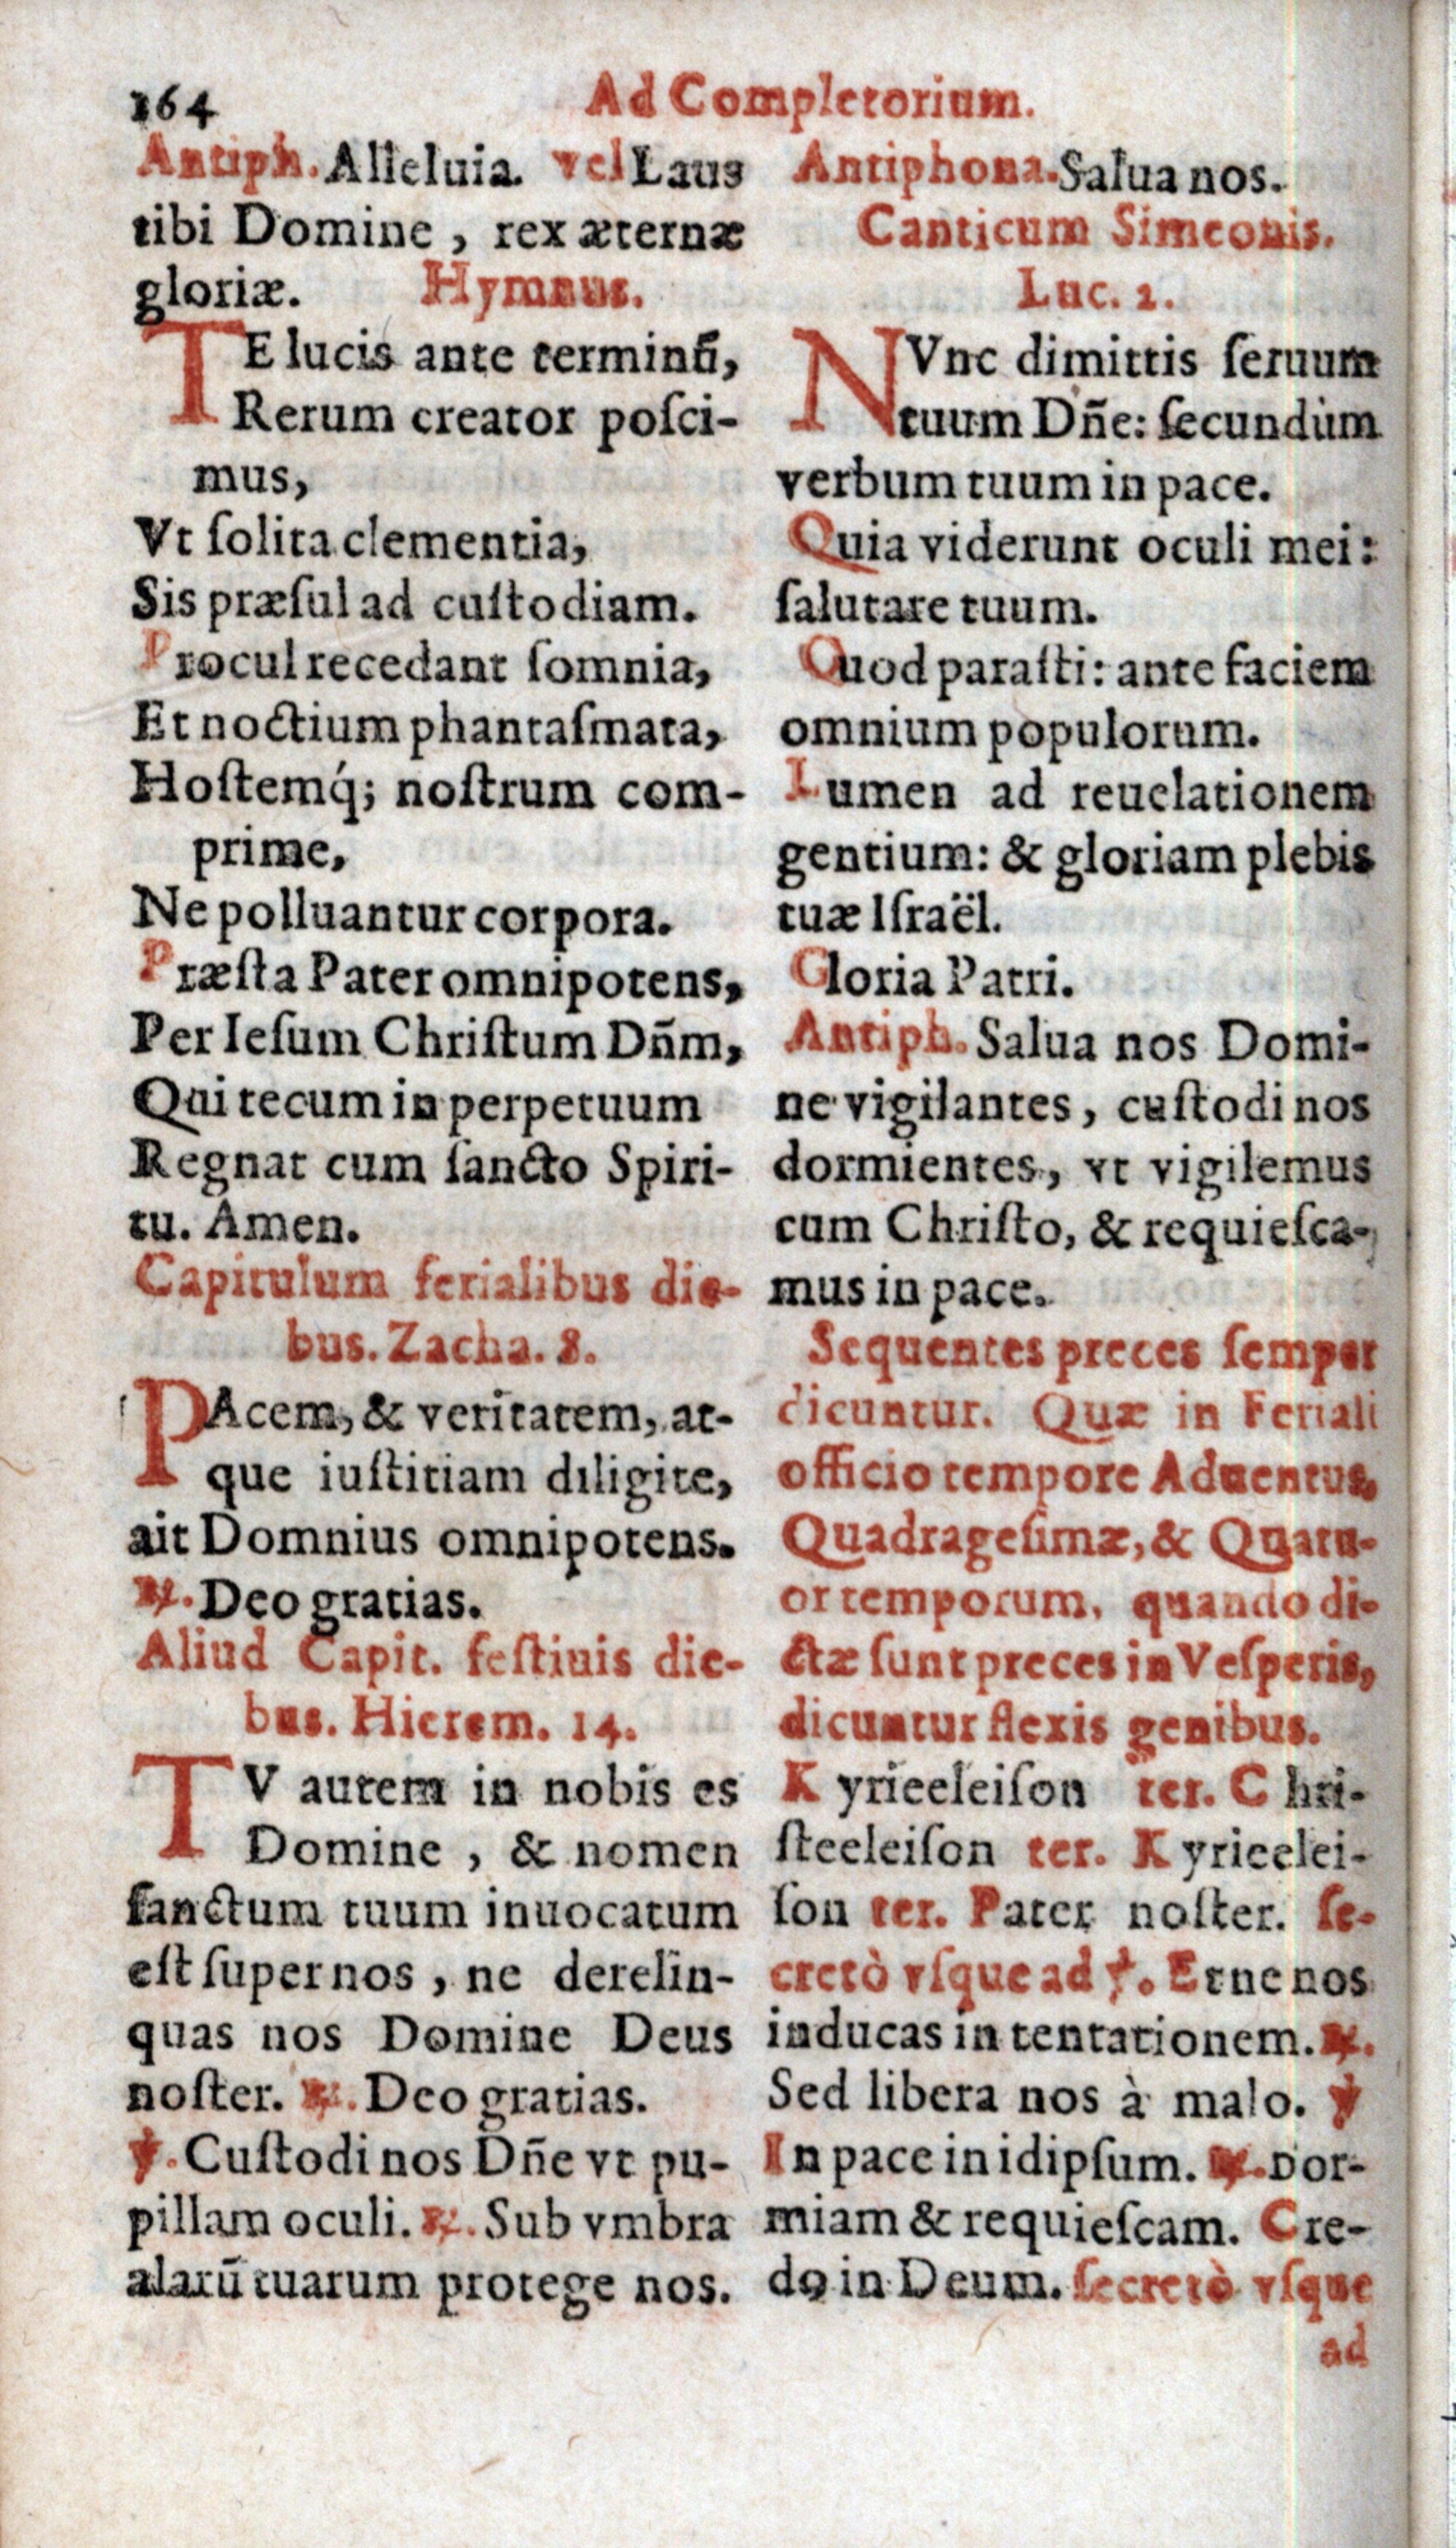 164
Ad Completorium.
Antiph. Alleluia. vel Laus
tibi Domine, rex æternæ
gloriæ. Hymnus.
TE lucis ante terminū,
Rerum creator poſci-
mus,
Vt ſolita clementia,
Sis præſul ad cuſtodiam.
Procul recedant ſomnia,
Et noctium phantaſmata,
Hoſtemq́; noſtrum com-
prime,
Ne polluantur corpora.
Præſta Pater omnipotens,
Per Ieſum Chriſtum Dñm,
Qui tecum in perpetuum
Regnat cum ſancto Spiri-
tu. Amen.
Capitulum ferialibus die-
bus. Zacha. 8.
PAcem, & veritatem, at-
que iuſtitiam diligite,
ait Domnius omnipotens.
℟. Deo gratias.
Aliud Capit. feſtiuis die-
bus. Hierem. 14.
TV autem in nobis es
Domine, & nomen
ſanctum tuum inuocatum
eſt ſuper nos, ne derelin-
quas nos Domine Deus
noſter. ℟. Deo gratias.
℣. Cuſtodi nos Dñe vt pu-
pillam oculi. ℟. Sub vmbra
alarū tuarum protege nos.
Antiphona. Salua nos.
Canticum Simeonis.
Luc. 2.
NVnc dimittis ſeruum
tuum Dñe: ſecundùm
verbum tuum in pace.
Quia viderunt oculi mei:
ſalutare tuum.
Quod paraſti: ante faciem
omnium populorum.
Lumen ad reuelationem
gentium: & gloriam plebis
tuæ Iſraël.
Gloria Patri.
Antiph. Salua nos Domi-
ne vigilantes, cuſtodi nos
dormientes, vt vigilemus
cum Chriſto, & requieſca-
mus in pace.
Sequentes preces ſemper
dicuntur. Quæ in Feriali
officio tempore Aduentus,
Quadrageſimæ, & Quatu-
or temporum, quando di-
ctæ ſunt preces in Veſperis,
dicuntur flexis genibus.
K yrieeleiſon ter. C hri-
ſteeleiſon ter. K yrieelei-
ſon ter. Pater noſter. ſe-
cretò vſque ad ℣. Et ne nos
inducas in tentationem. ℟.
Sed libera nos à malo. ℣
In pace in idipſum. ℟. Dor-
miam & requieſcam. Cre-
do in Deum. ſecretò vſque
ad